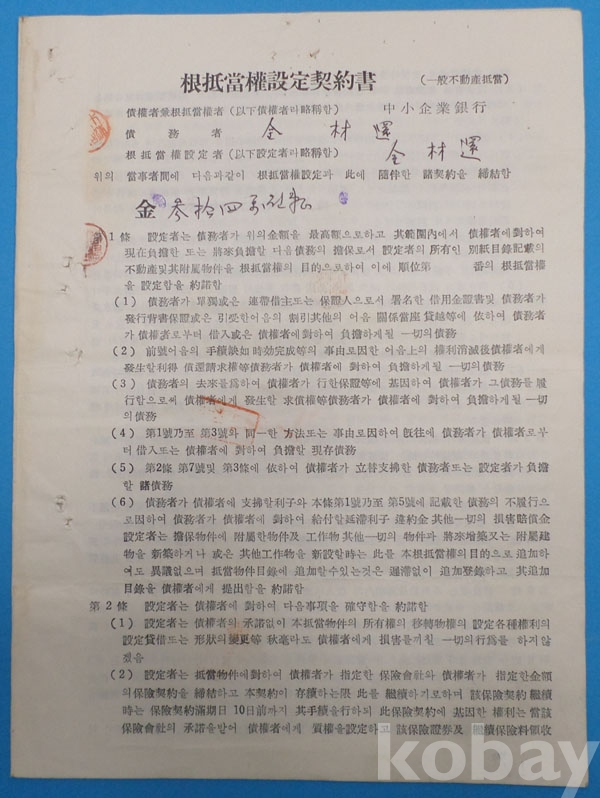 根抵當權設定契約書 (一般不動產抵當)
債權者兼根抵當權者 (以下債權者라略稱함) 中小企業銀行
債務者 金 材 運
根抵當權設定者 (以下設定者라略稱함) 金 材 運
위의 當事者間에 다음과같이 根抵當權設定과 此에 隨伴한 諸契約을 締結함
金 參拾四萬원整
第1條 設定者는 債務者가 위의金額을 最高額으로하고 其範圍內에서 債權者에對하여
現在負擔한 또는 將來負擔할 다음債務의 擔保로서 設定者의 所有인 別紙目錄記載의
不動產및其附屬物件을 根抵當權의 目的으로하여 이에 順位第 番의 根抵當權
을 設定함을 約諾함
(1) 債務者가 單獨或은 連帶借主또는 保證人으로서 署名한 借用金證書및 債務者가
發行背書保證或은 引受한어음의 割引其他의 어음 關係當座貸越等에 依하여 債務者
가 債權者로부터 借入或은 債權者에對하여 負擔하게될 一切의債務
(2) 前號어음의 手續缺如 時効完成等의 事由로因한 어음上의 權利消滅後債權者에게
發生할利得 償還請求權等債務者가 債權者에 對하여 負擔하게될 一切의債務
(3) 債務者의 去來를爲하여 債權者가 行한保證等에 基因하여 債權者가 그債務를 履
行함으로써 債權者에게 發生할 求償權等債務者가 債權者에 對하여 負擔하게될 一切
의債務
(4) 第1號乃至 第3號와 同一한 方法또는 事由로因하여 旣往에 債務者가 債權者로부
터 借入또는 債權者에 對하여 負擔한 現存債務
(5) 第2條 第7號및 第3條에 依하여 債權者가 立替支拂한 債務者또는 設定者가負擔
할 諸債務
(6) 債務者가 債權者에 支拂할利子와 本條第1號乃至 第5號에 記載한 債務의 不履行으
로因하여 債務者가 債權者에 對하여 給付할延滯利子 違約金 其他一切의 損害賠償金
設定者는 擔保物件에 附屬한物件및 工作物 其他一切의 物件과 將來增築又는 附屬建
物을 新築하거나 或은 其他工作物을 新設할時는 此를 本根抵當權의目的으로 追加하
여도 異議없으며 抵當物件目錄에 追加할수있는것은 遲滯없이 追加登錄하고 其追加
目錄을 債權者에게 提出함을 約諾함
第2條 設定者는 債權者에 對하여 다음事項을 確守함을 約諾함
(1) 設定者는 債權者의 承諾없이 本抵當物件의 所有權의 移轉物權의 設定各種權利의
設定貸借또는 形狀의變更等 秋毫라도 債權者에게 損害를끼칠 一切의行爲를 하지않
겠음
(2) 設定者는 抵當物件에對하여 債權者가 指定한 保險會社와 債權者가 指定한金額
의保險契約을 締結하고 本契約이 存續하는限 此를 繼續하기로하며 該保險契約 繼續
時는 保險契約滿期日 10日前까지 其手續을行하되 此保險契約에 基因한 權利는當該
保險會社의 承諾을받어 債權者에게 質權을設定하고 該保險證券及 繼續保險料領收
kobay